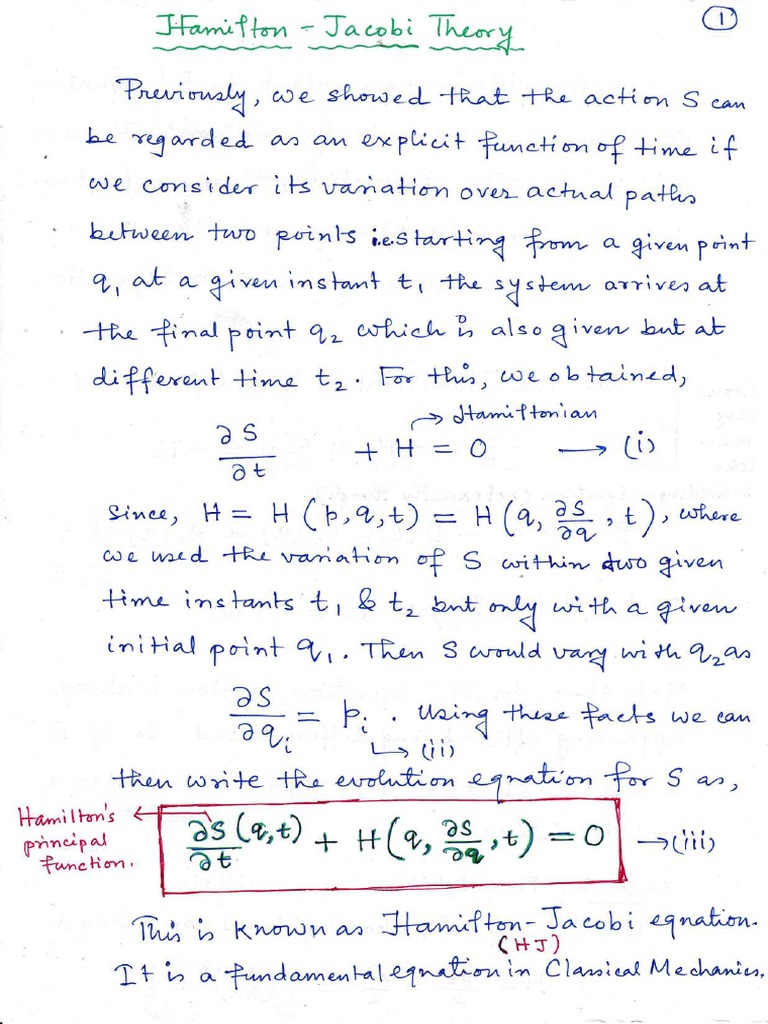 Hamilton - Jacobi Theory
1
Previously, we showed that the action S can
be regarded as an explicit function of time if
we consider its variation over actual paths
between two points i.e. starting from a given point
q₁ at a given instant t₁ the system arrives at
the final point q₂ which is also given but at
different time t₂. For this, we obtained,
∂S/∂t + H = 0 → (i)
→ Hamiltonian
Since, H = H (p,q,t) = H(q, ∂S/∂q, t), where
we used the variation of S within two given
time instants t₁ & t₂ but only with a given
initial point q₁. Then S would vary with q₂ as
∂S/∂qᵢ = pᵢ. Using these facts we can
↳ (ii)
then write the evolution equation for S as,
Hamilton's
principal
function.
∂S(q,t)/∂t + H(q, ∂S/∂q, t) = 0 → (iii)
This is known as Hamilton-Jacobi equation.
(HJ)
It is a fundamental equation in Classical Mechanics.